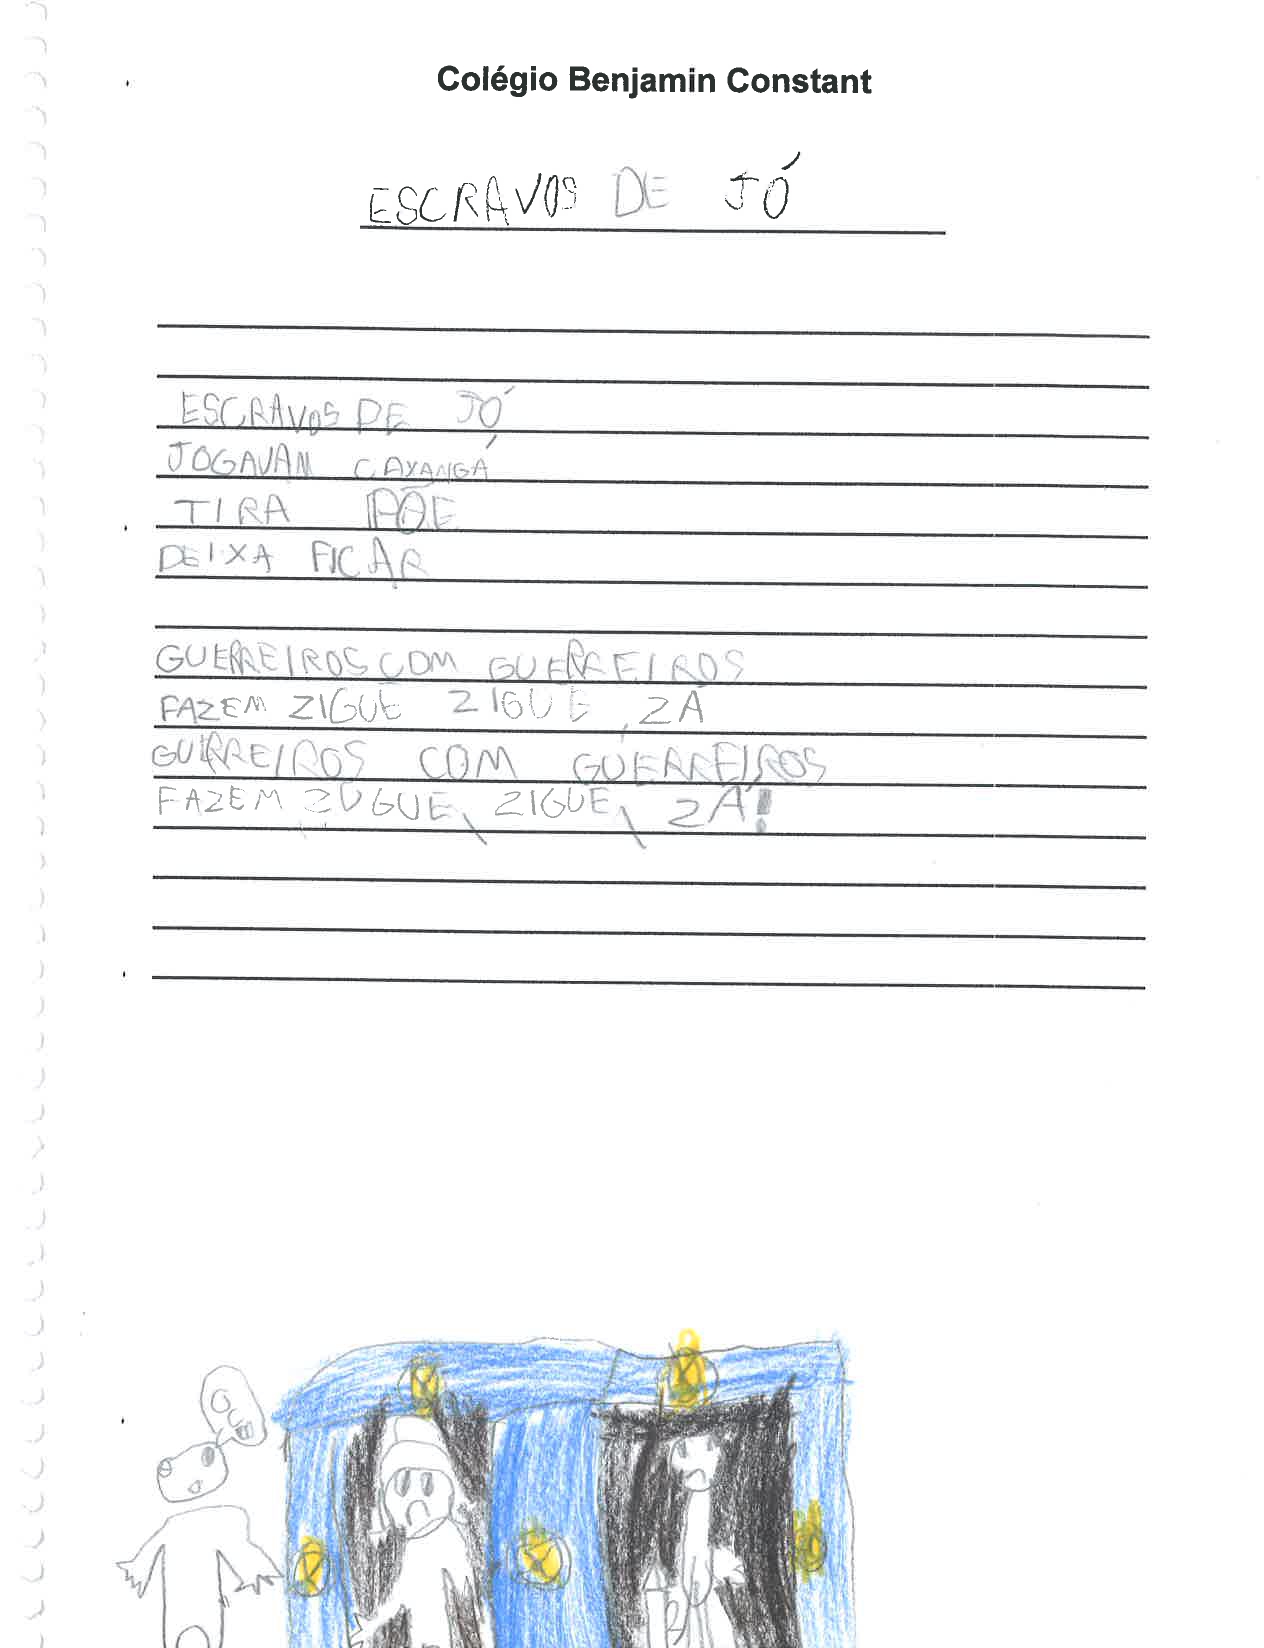 Colégio Benjamin Constant
ESCRAVOS DE JÓ
ESCRAVOS DE JÓ
JOGAVAM CAXANGÁ
TIRA PÕE
DEIXA FICAR
GUERREIROS COM GUERREIROS
FAZEM ZIGUE ZIGUE, ZA
GUIRREIROS COM GUERREIROS
FAZEM ZUGUE, ZIGUE, ZA!